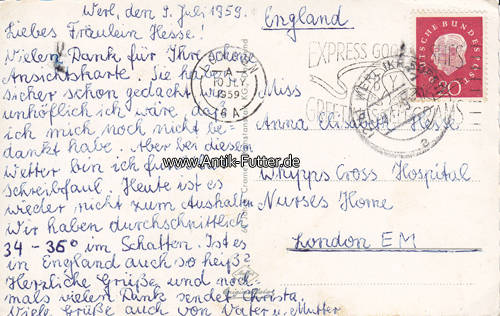 Werl, den 9. Juli 1959.
Liebes Fräulein Hesse!
Vielen Dank für Ihre schöne
Ansichtskarte. Sie haben
sicher schon gedacht
unhöflich ich wäre, da
ich mich noch nicht be-
dankt habe. Aber bei diesem
Wetter bin ich furchtbar
schreibfaul. Heute ist es
wieder nicht zum Aushalten
Wir haben durchschnittlich
34 - 36° im Schatten. Ist es
in England auch so heiß?
Herzliche Grüße und noch-
mals vielen Dank sendet Christa.
Viele Grüße auch von Vater u. Mutter
England
Miss
Anna Elisabeth Hesse
Whipps Cross Hospital
Nurses Home
London E11
EXPRESS GOOD WISHES
GREETINGS TELEGRAMS
10 JLY
1959
DEUTSCHE BUNDESPOST
20
www.Antik-Futter.de